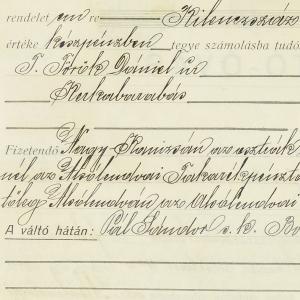 rendelet em re Kilenczszáz
értéke készpénzben tegye számolásba tudó
T. Török Dániel úr
Kerkabarabás
Fizetendő Nagy-Kanizsán az osztrák
nál az Alsólendvai Takarékpénzta
tőleg Alsólendván az Alsólendvai
A váltó hátán: Pál Sándor s. k. Bo